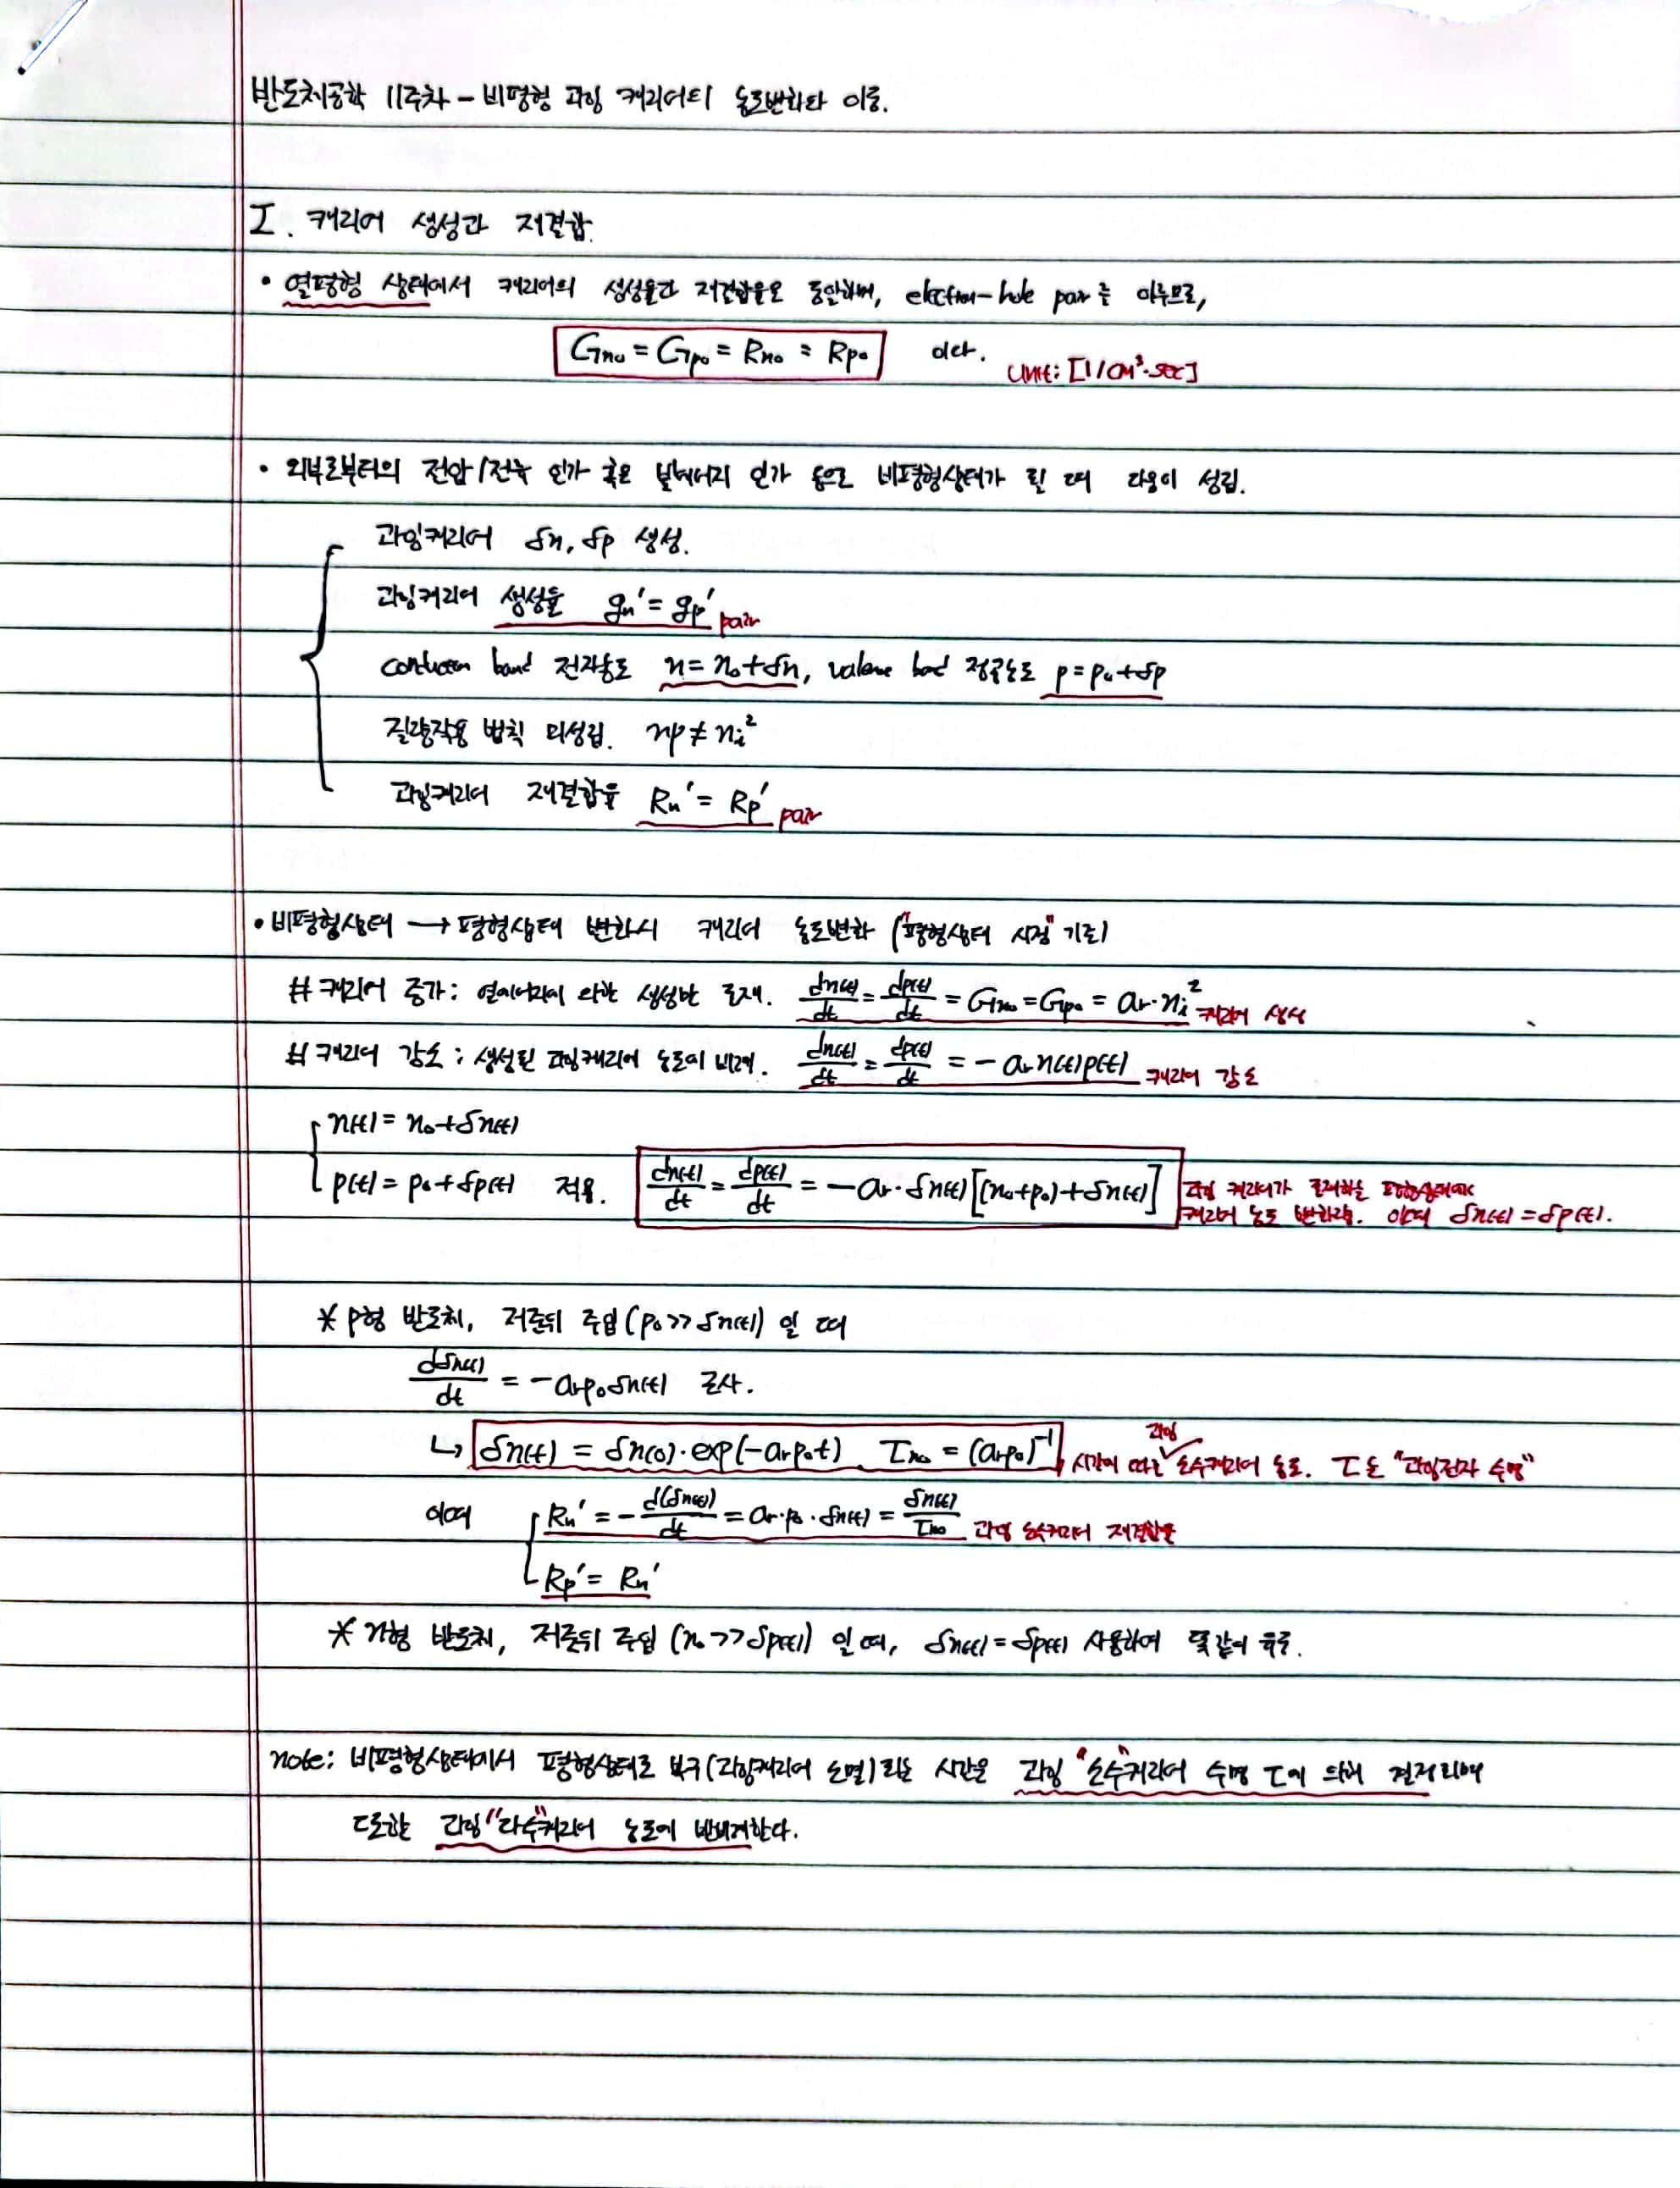 반도체공학 11주차 - 비평형 과잉 캐리어의 농도변화와 이동.
I. 캐리어 생성과 재결합.
• 열평형 상태에서 캐리어의 생성율과 재결합율은 동일하며, electron-hole pair를 이루므로,
Gno = Gpo = Rno = Rpo 이다. Unit: [1/cm³·sec]
• 외부로부터의 전압/전류 인가 혹은 빛에너지 인가 등으로 비평형상태가 될 때 다음이 성립.
과잉캐리어 δn, δp 생성.
과잉캐리어 생성율 gn' = gp' pair
conduction band 전자농도 n = n₀+δn, valence band 정공농도 p = p₀+δp
질량작용 법칙 미성립. np ≠ ni²
과잉캐리어 재결합율 Rn' = Rp' pair
• 비평형상태 → 평형상태 변화시 캐리어 농도변화 ("평형상태 시점" 기준)
# 캐리어 증가: 열에너지에 의한 생성만 존재. dn(t)/dt = dp(t)/dt = Gno = Gpo = αr·ni² 캐리어 생성
# 캐리어 감소: 생성된 과잉캐리어 농도에 비례. dn(t)/dt = dp(t)/dt = -αr n(t)p(t) 캐리어 감소
n(t) = n₀+δn(t)
p(t) = p₀+δp(t) 적용. dn(t)/dt = dp(t)/dt = -αr·δn(t)[(n₀+p₀)+δn(t)] 과잉 캐리어가 존재하는 평형상태에서
캐리어 농도 변화율. 이때 δn(t) = δp(t).
* p형 반도체, 저준위 주입 (p₀ >> δn(t)) 일 때
dδn(t)/dt = -αr p₀ δn(t) 근사.
↳ δn(t) = δn(0)·exp(-αr p₀ t) τno = (αr p₀)⁻¹ 시간에 따른 과잉 소수캐리어 농도. τ는 "과잉전자 수명"
이때 Rn' = -d(δn(t))/dt = αr·p₀·δn(t) = δn(t)/τno 과잉 소수캐리어 재결합율
Rp' = Rn'
* n형 반도체, 저준위 주입 (n₀ >> δp(t)) 일 때, δn(t) = δp(t) 사용하여 똑같이 유도.
note: 비평형상태에서 평형상태로 복구(과잉캐리어 소멸)되는 시간은 과잉 "소수"캐리어 수명 τ에 의해 결정되며
또한 과잉 "다수"캐리어 농도에 반비례한다.